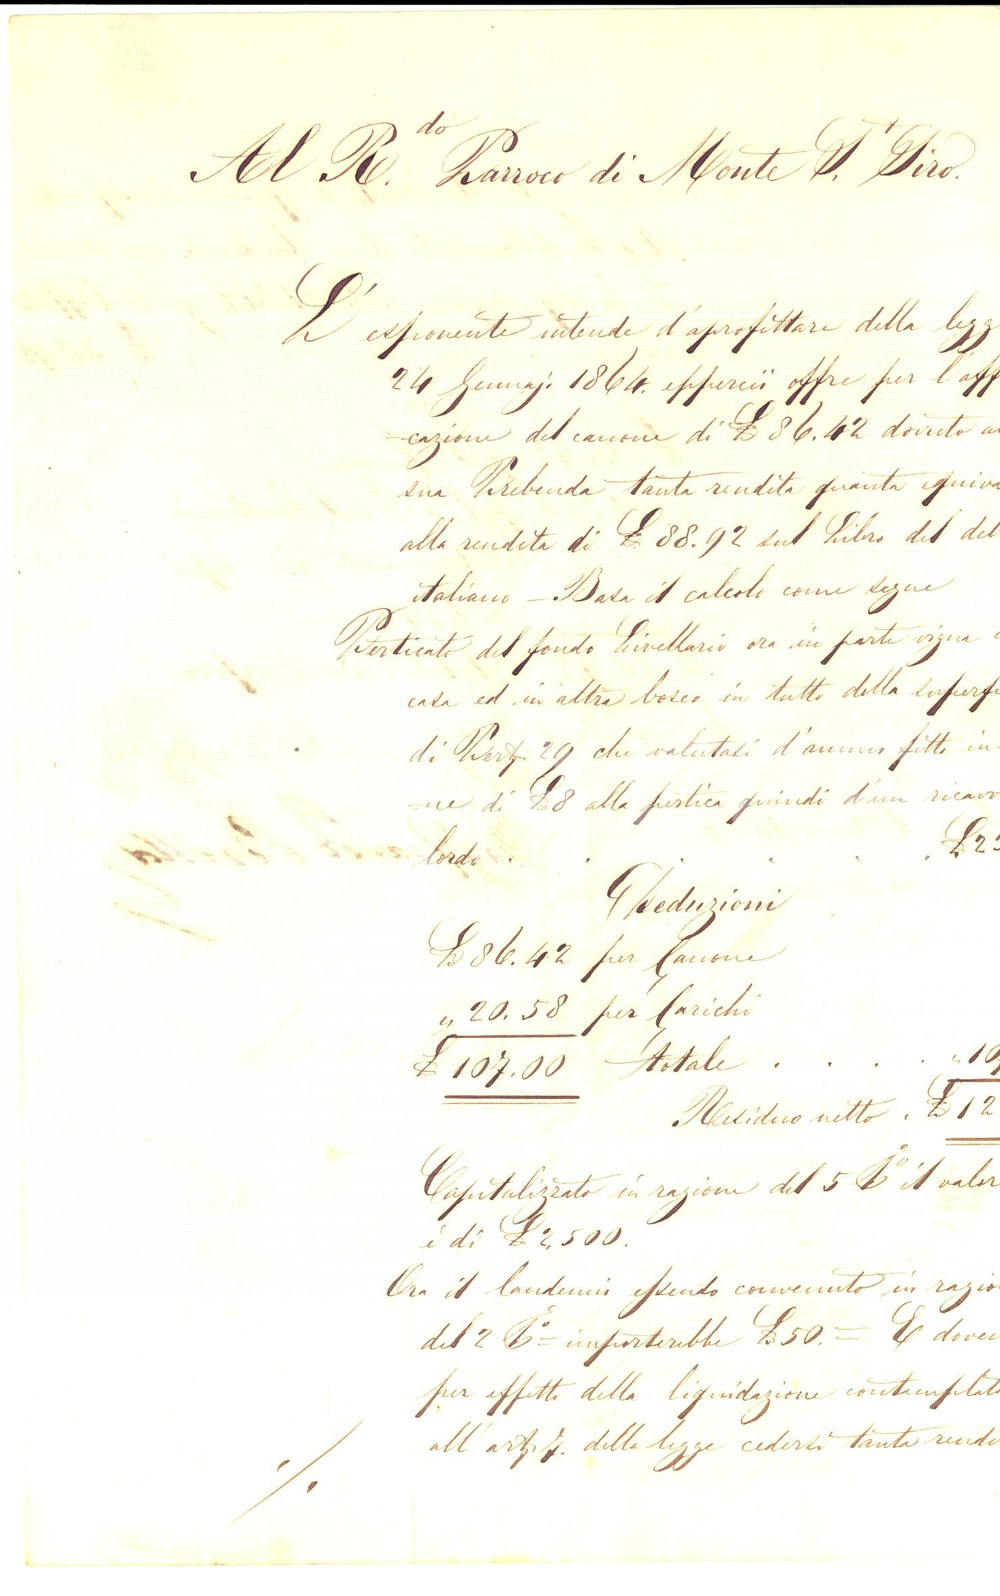 Al R.do Parroco di Monte S.t Siro.
L'esponente intende d'aprofittare della legg
24 Gennajo 1864. epperciì offre per l'aff
-cazione del canone di £ 86.42 dovuto a
sua Prebenda tanta rendita quanta equiva
alla rendita di £ 88.92 sul Libro del deb
italiano – Basa il calcolo come segue
Perticato del fondo Livellario ora in parte vigna
casa ed in altra bosco in tutto della superfi
di Pert. 29 che valutasi d'annuo fitto in-
me di £8 alla pertica quindi d'un ricavo
lordo . . . . . . £23
Deduzioni
£ 86.42 per Canone
„ 20.58 per Carichi
£ 107.00 totale . . . . „ 107
Residuo netto . £ 12
Capitalizzato in ragione del 5 P.o il valor
è di £ 2,500.
Ora il laudemio essendo convenuto in ragio
del 2 P.o = importerebbe £ 50. = E doven
per effetto della liquidazione contemplata
all'art. 7. della legge cedersi tanta rendi
./.